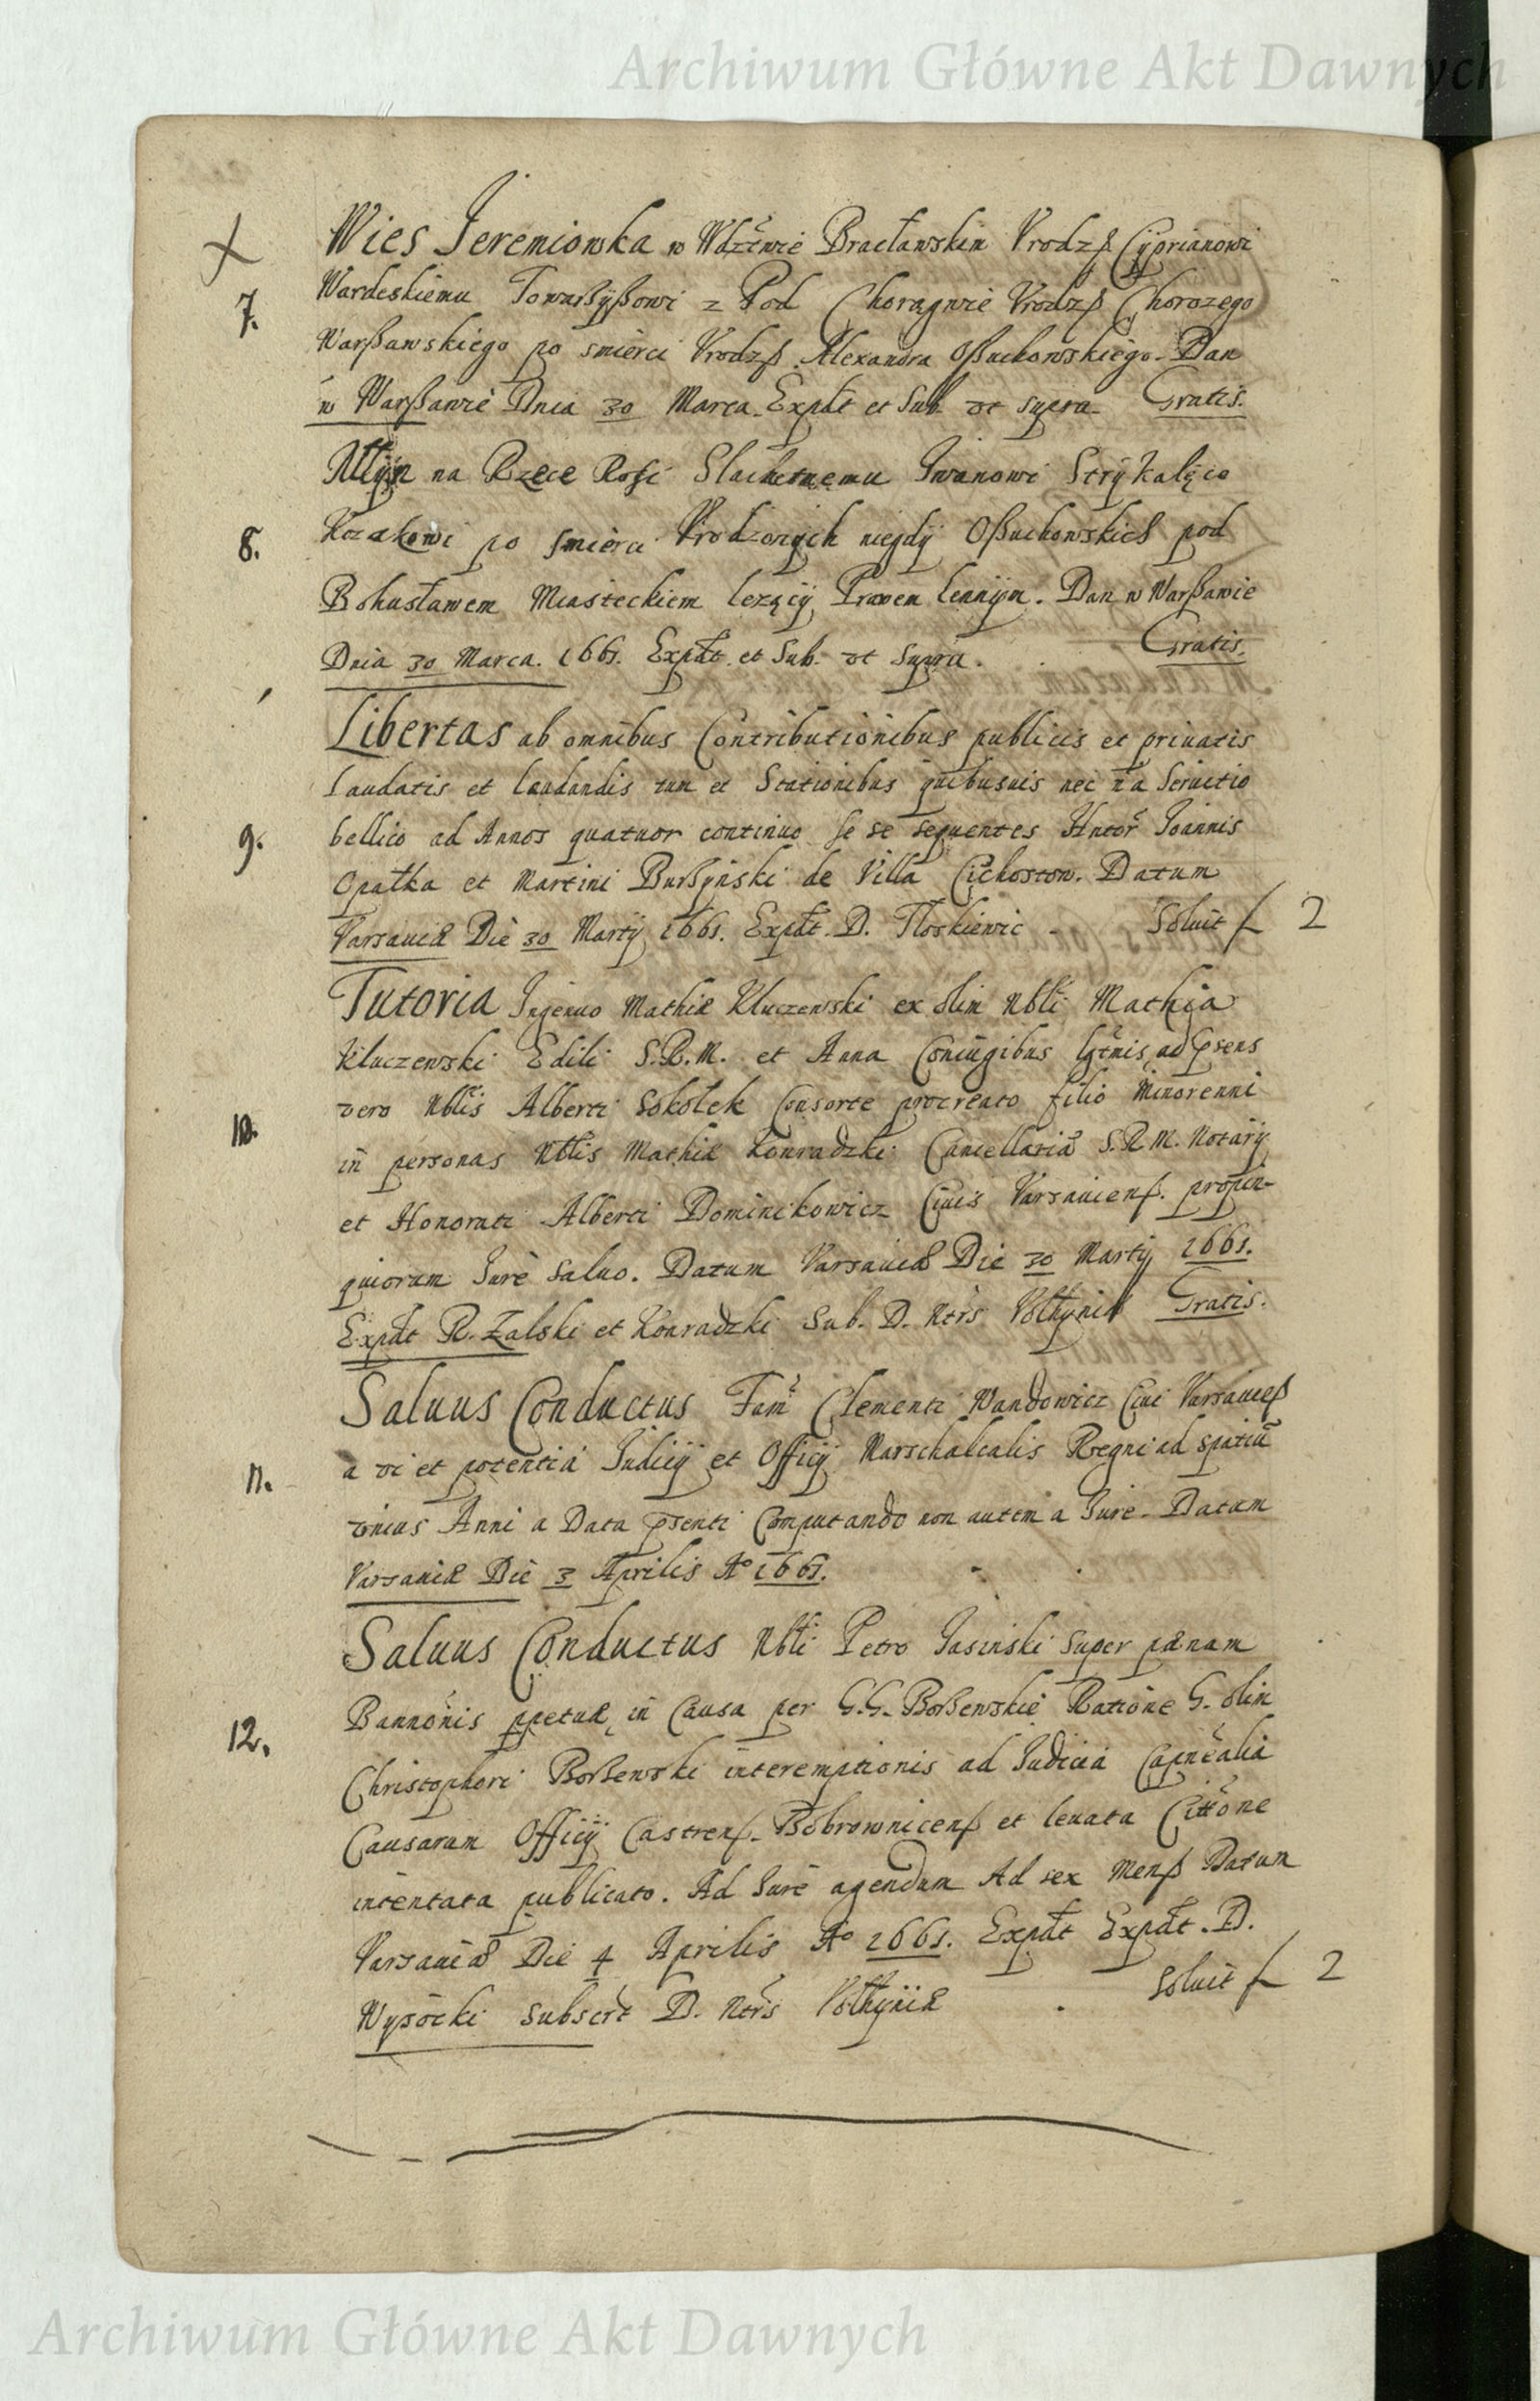 Archiwum Główne Akt Dawnych
Wies Jeremiowka w Wdztwie Bracławskim Vrodzß Cyprianowi
Wardeskiemu Towarßyßowi z Pod Choragwie Vrodzß Chorozego
7.
Warßawskiego po smierci Vrodzß Alexandra Oßuchowskiego. Dan
w Warßawie Dnia 30 Marca. Expdt et Sub. vt supra. Gratis.
Młyn na Rzece Rosi Slachetnemu Iwanowi Strykalęce
8.
Kozakowi po Smierci Vrodzonych niegdy Oßuchowskich pod
Bohusławem Miasteckiem lezący Prawem lennym. Dan w Warßawie
Dnia 30 Marca. 1661. Expdt. et Sub. vt Supra. Gratis.
Libertas ab omnibus Contributionibus publicis et priuatis
laudatis et laudandis tum et Stationibus quibusuis nec na Seruitio
9.
bellico ad Annos quatuor continuo se se sequentes Joannis
Opatka et Martini Burßynski de Villa Cichostow. Datum
Varsauiæ Die 30 Martij 1661. Expdt. D. Tłoskiewic - Soluit f 2
Tutoria Ingenuo Mathiæ Kluczewski ex olim Nbli Mathia
Kluczewski Edili S.R.M. et Anna Coniugibus lgtmis, ad psens
vero Nblis Alberti Sokołek Consorte procreato filio Minorenni
10.
in personas Nblis Mathiæ Konradzki Cancellariæ S.R.M. Notarij
et Honorati Alberti Dominikowicz Ciuis Varsauiens. propin-
quiorum Iure saluo. Datum Varsauiæ Die 30 Martij 1661.
Expdt R. Zalski et Konradzki Sub. D. Ntrs Vołhyniæ Gratis.
Saluus Conductus Fam Clementi Wandowicz Ciui Varsauieß
11.
a vi et potentia Iudicij et Officij Marschalcalis Regni ad spatiũ
vnius Anni a Data psenti Computando non autem a Iure. Datum
Varsauiæ Die 3 Aprilis Ao 1661.
Saluus Conductus Nbli Petro Jasinski super pænam
Bannonis ppetuæ, in Causa per G.G. Borßewskie Ratione G. olim
12.
Christophori Borßewski interemptionis ad Iudicia Capnealia
Causarum Officij Castrens. Bobrownicenß et leuata Cittone
intentata publicato. Ad Iure agendum Ad sex Menß Datum
Varsauiæ Die 4 Aprilis Ao 1661. Expdt Expdt. D.
Wysocki subscrt D. Ntrs Vołhyniæ . Soluit f 2
Archiwum Główne Akt Dawnych